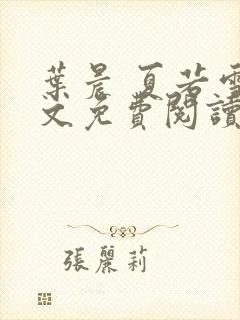 葉晨 夏若雪
文免費閱讀
張麗莉